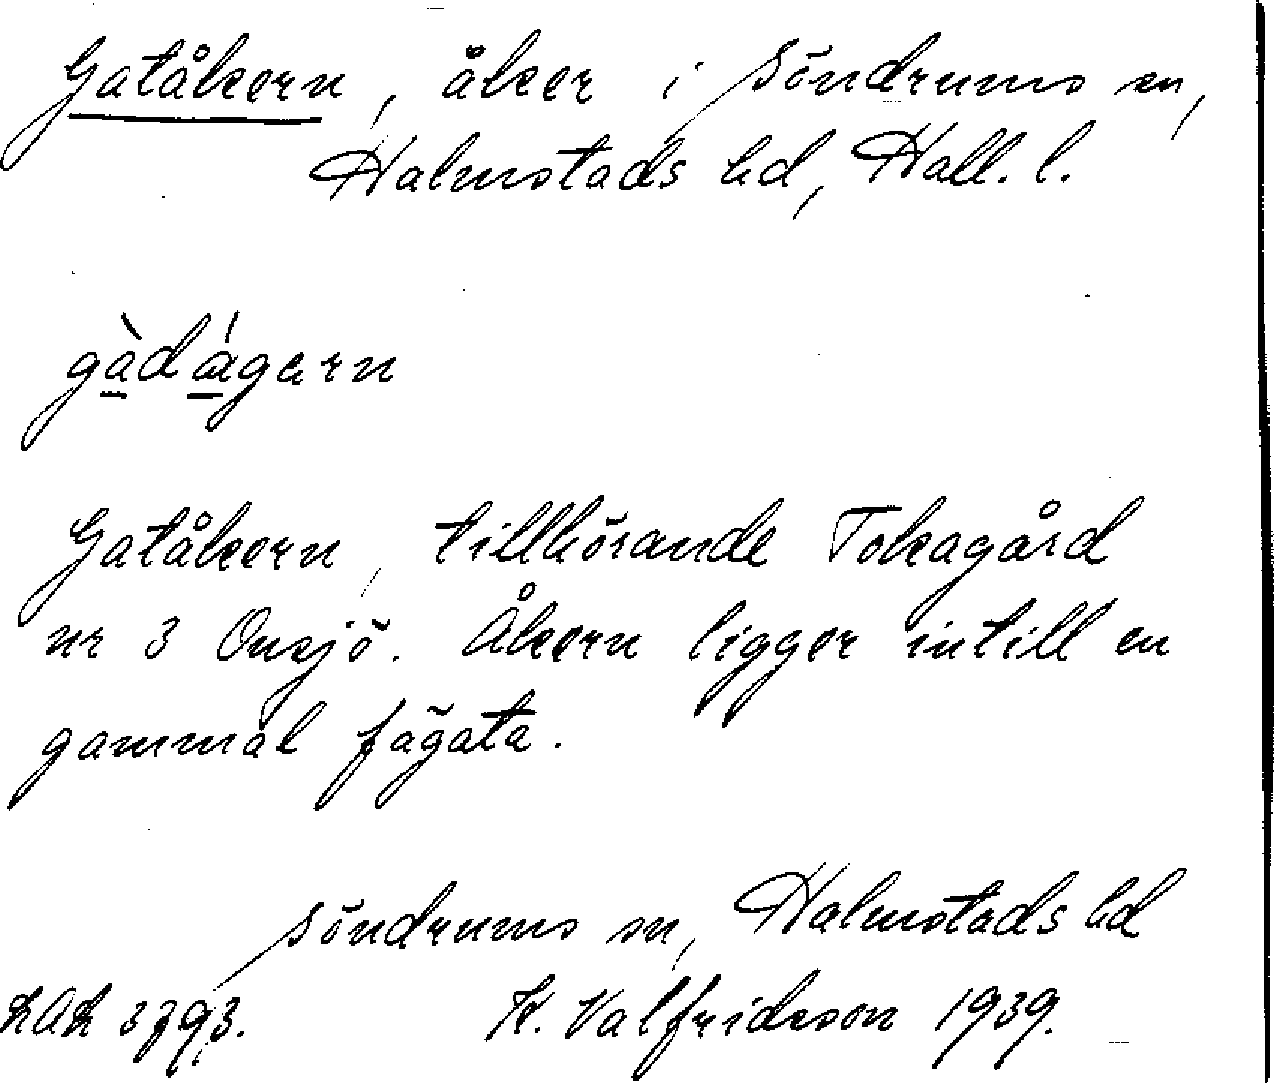 Gatåkern, åker i Söndrums sn,
Halmstads hd, Hall. l.
gàdágarn
Gatåkern, tillhörande Tokagård
nr 3 Onsjö. Åkern ligger intill en
gammal fägata.
Söndrums sn, Halmstads hd
3793. K. Valfridsson 1939.